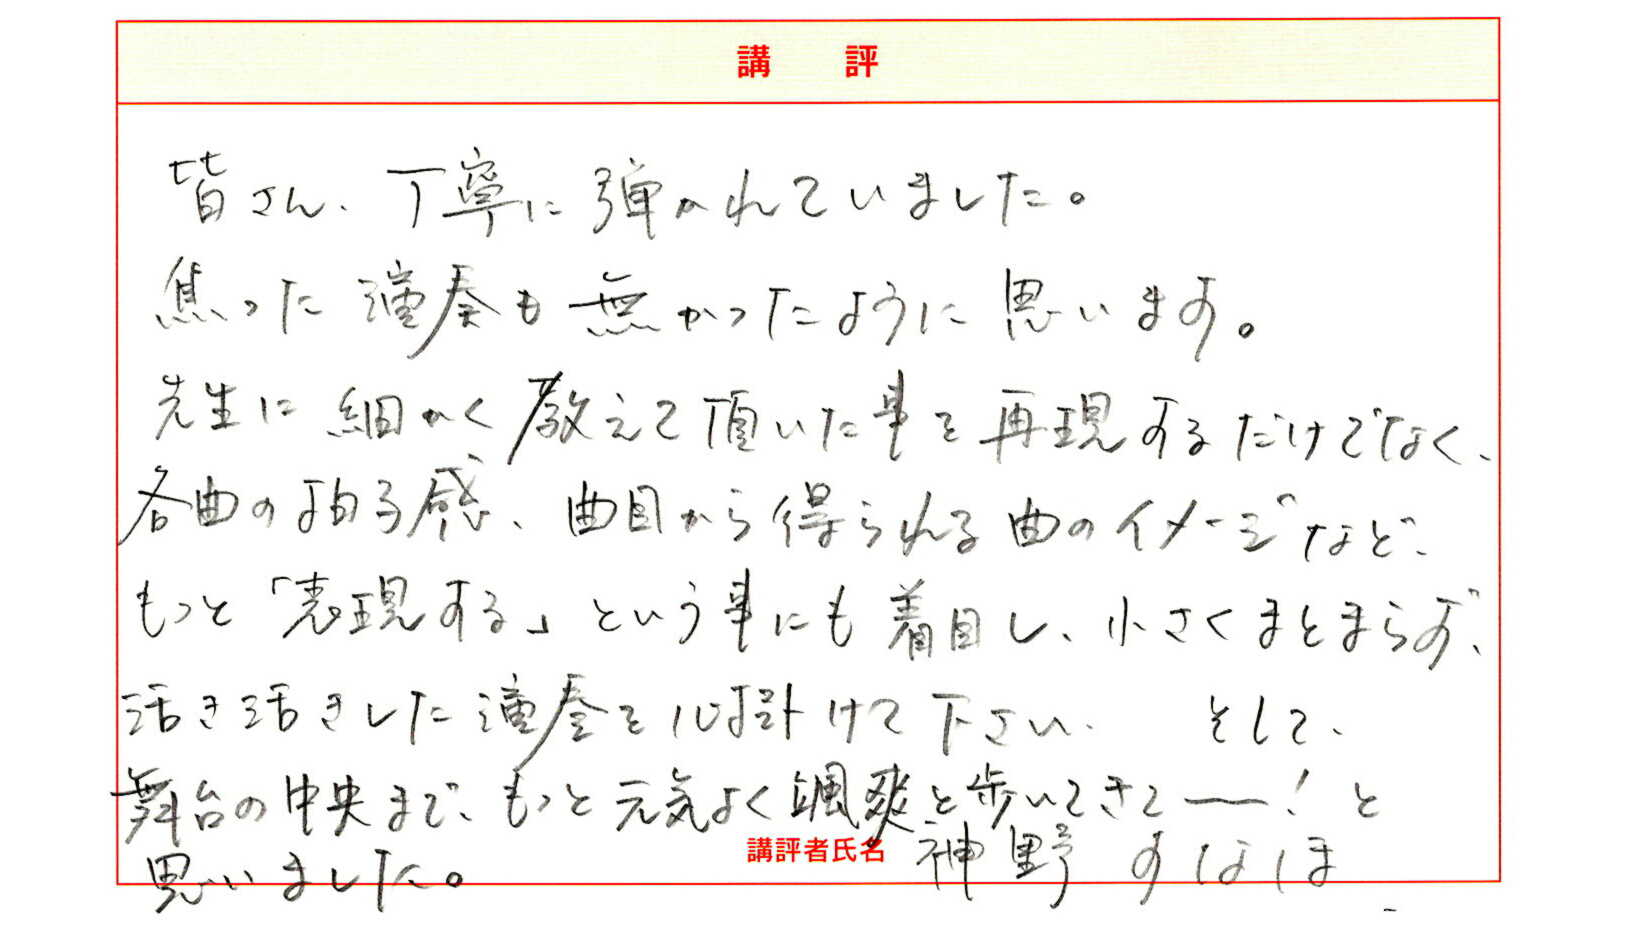 講 評
皆さん、丁寧に弾かれていました。
焦った演奏も無かったように思います。
先生に細かく教えて頂いた事を再現するだけでなく、
各曲の拍子感、曲目から得られる曲のイメージなど、
もっと「表現する」という事にも着目し、小さくまとまらず、
活き活きした演奏を心掛けて下さい。 そして、
舞台の中央まで、もっと元気よく颯爽と歩いてきて〜!と
思いました。
講評者氏名 神野 すなほ